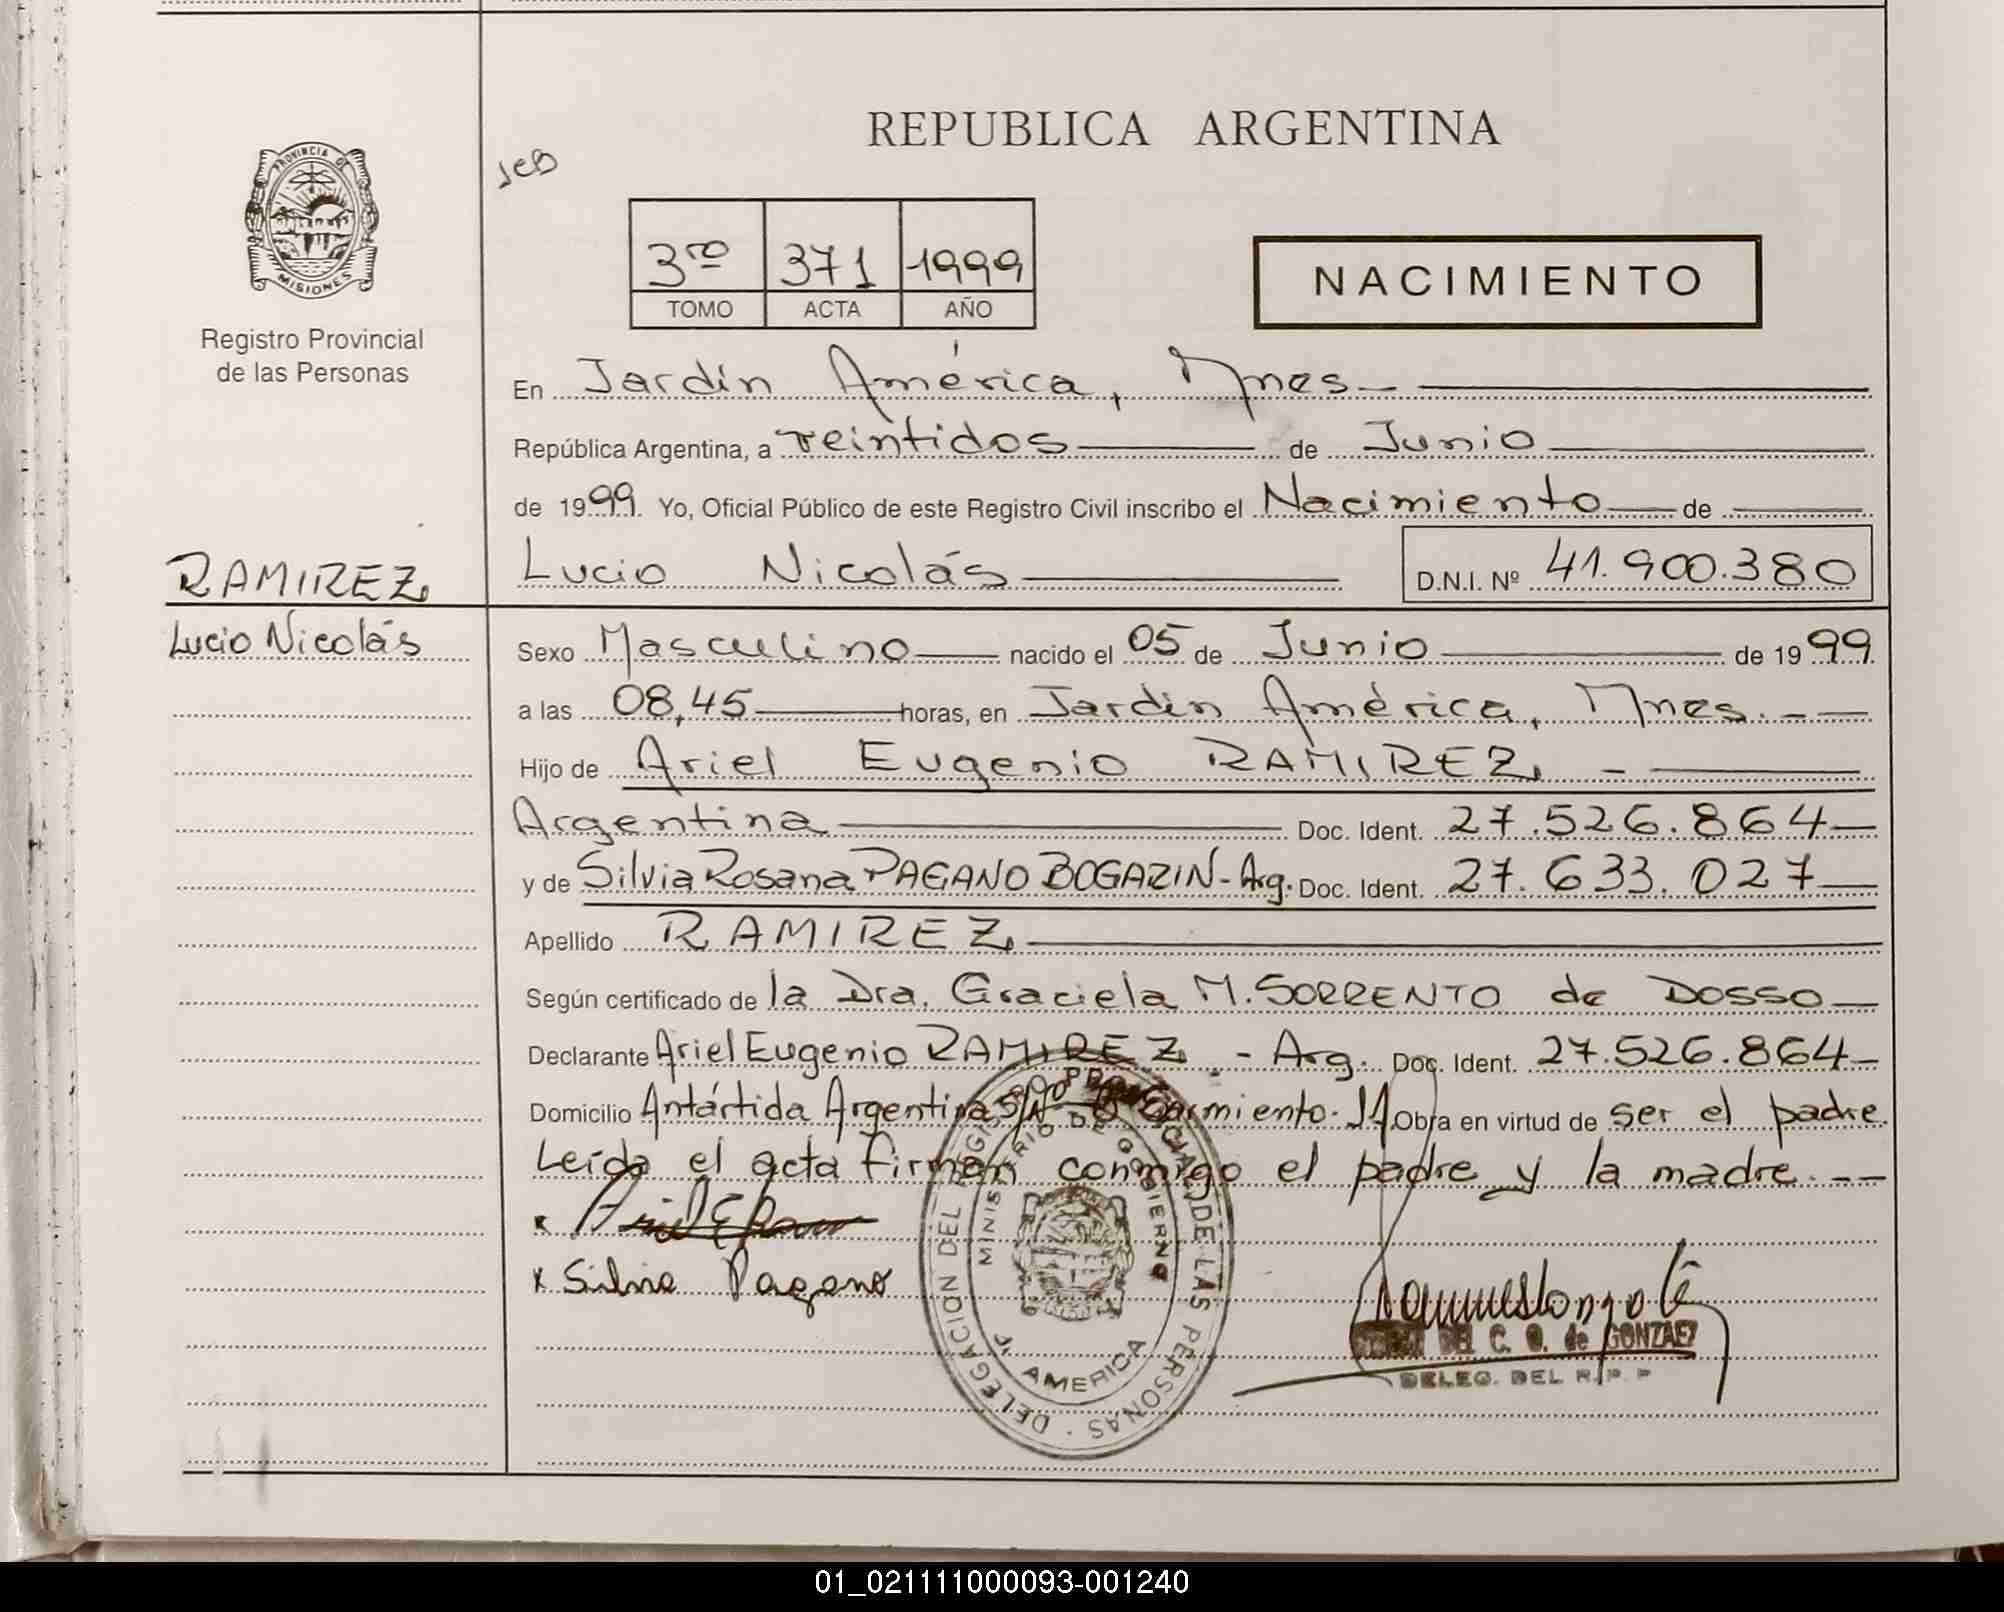 REPUBLICA ARGENTINA
PROVINCIA DE
MISIONES
Registro Provincial
de las Personas
3ro 371 1999
TOMO ACTA AÑO
NACIMIENTO
En Jardín América, Mnes
República Argentina, a veintidos de Junio
de 1999 Yo, Oficial Público de este Registro Civil inscribo el Nacimiento de
Lucio Nicolás D.N.I. Nº 41.900.380
RAMIREZ
Lucio Nicolás
Sexo Masculino nacido el 05 de Junio de 1999
a las 08,45 horas, en Jardín América, Mnes.
Hijo de Ariel Eugenio RAMIREZ
Argentina Doc. Ident. 27.526.864
y de Silvia Rosana PAGANO BOGARIN - Arg. Doc. Ident. 27.633.027
Apellido RAMIREZ
Según certificado de la Dra. Graciela M. SORRENTO de DOSSO
Declarante Ariel Eugenio RAMIREZ - Arg. Doc. Ident. 27.526.864
Domicilio Antártida Argentina S/Nº Sarmiento - JA Obra en virtud de ser el padre.
Leída el acta firman conmigo el padre y la madre.
x Silvia Pagano
DELEGACION DEL REGISTRO PROVINCIAL DE LAS PERSONAS
MINISTERIO DE GOBIERNO
J. AMERICA
DEL C. O. de GONZAEZ
DELEG. DEL R. P. P
01_021111000093-001240